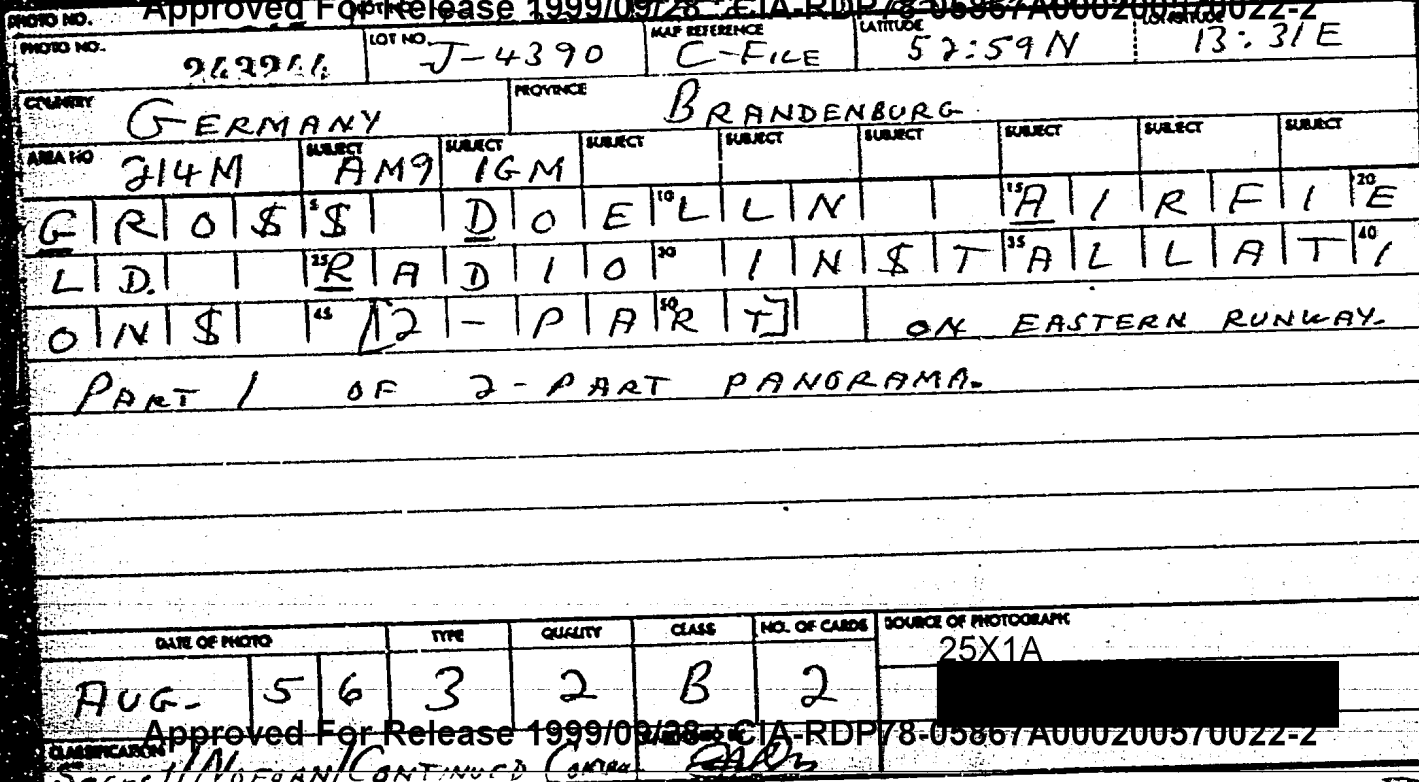 Approved For Release 1999/09/28 : CIA-RDP78-05867A000200570022-2
PHOTO NO. LOT NO. J-4390 MAP REFERENCE C-FILE LATITUDE 52:59N LONGITUDE 13:31E
COUNTRY GERMANY PROVINCE BRANDENBURG
AREA NO 214M SUBJECT AM9 SUBJECT IGM SUBJECT SUBJECT SUBJECT SUBJECT SUBJECT SUBJECT
GRO$$ DOELLN AIRFIE
LD. RADIO IN$TALLATI
ON$ [2-PART] ON EASTERN RUNWAY.
PART 1 OF 2-PART PANORAMA.
DATE OF PHOTO TYPE QUALITY CLASS NO. OF CARDS SOURCE OF PHOTOGRAPH
25X1A
AUG- 56 3 2 B 2
Approved For Release 1999/09/28 : CIA-RDP78-05867A000200570022-2
CLASSIFICATION
Secret/NOFORN/CONTINUED CONTROL